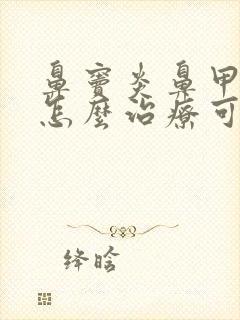 鼻窦炎鼻甲
怎麼治療可
绛晗